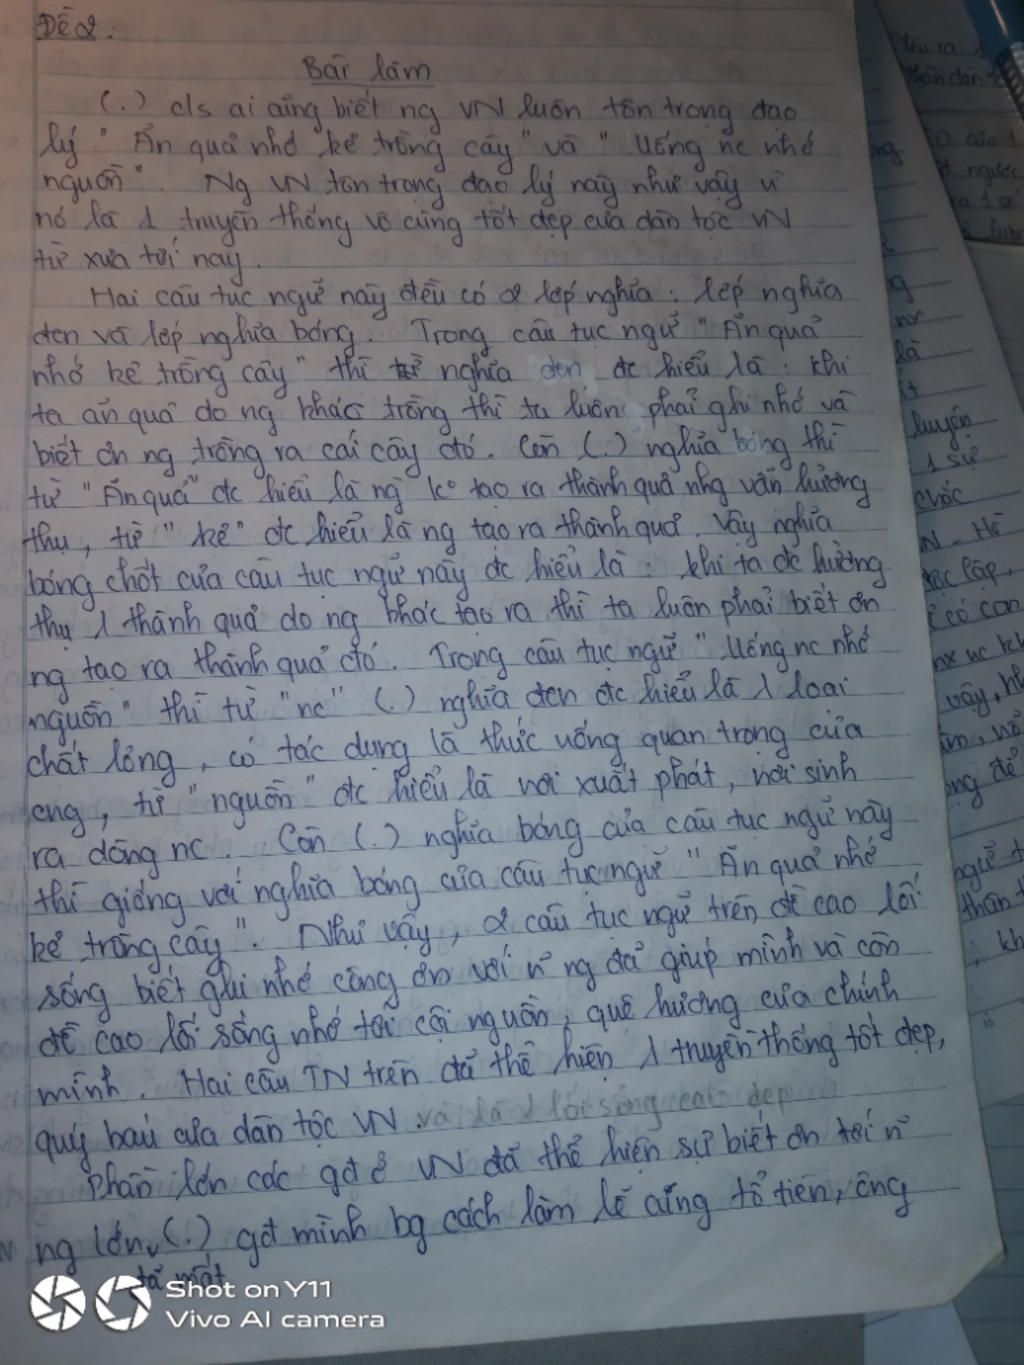 Đề 2.
Bài làm
(.) c/s ai cũng biết ng VN luôn tôn trọng đạo
lý " Ăn quả nhớ kẻ trồng cây " và " Uống nc nhớ
nguồn ". Ng VN tôn trọng đạo lý này như vậy vì
nó là 1 truyền thống vô cùng tốt đẹp của dân tộc VN
từ xưa tới nay.
Hai câu tục ngữ này đều có 2 lớp nghĩa : lớp nghĩa
đen và lớp nghĩa bóng. Trong câu tục ngữ " Ăn quả
nhớ kẻ trồng cây " thì nghĩa đen đc hiểu là : khi
ta ăn quả do ng khác trồng thì ta luôn phải ghi nhớ và
biết ơn ng trồng ra cái cây đó. Còn (.) nghĩa bóng thì
từ " Ăn quả " đc hiểu là ng ko tạo ra thành quả nhg vẫn hưởng
thụ, từ " kẻ " đc hiểu là ng tạo ra thành quả. Vậy nghĩa
bóng chốt của câu tục ngữ này đc hiểu là : khi ta đc hưởng
thụ 1 thành quả do ng khác tạo ra thì ta luôn phải biết ơn
ng tạo ra thành quả đó. Trong câu tục ngữ " Uống nc nhớ
nguồn " thì từ " nc " (.) nghĩa đen đc hiểu là 1 loại
chất lỏng, có tác dụng là thức uống quan trọng của
cng, từ " nguồn " đc hiểu là nơi xuất phát, nơi sinh
ra dòng nc. Còn (.) nghĩa bóng của câu tục ngữ này
thì giống với nghĩa bóng của câu tục ngữ " Ăn quả nhớ
kẻ trồng cây ". Như vậy, 2 câu tục ngữ trên đề cao lối
sống biết ghi nhớ công ơn với n~ ng đã giúp mình và còn
đề cao lối sống nhớ tới cội nguồn, quê hương của chính
mình. Hai câu TN trên đã thể hiện 1 truyền thống tốt đẹp,
quý báu của dân tộc VN và là 1 lối sống cao đẹp
Phần lớn các gđ ở VN đã thể hiện sự biết ơn tới n~
ng lớn (.) gđ mình bg cách làm lễ cúng tổ tiên, ông
đã mất
Shot on Y11
Vivo AI camera